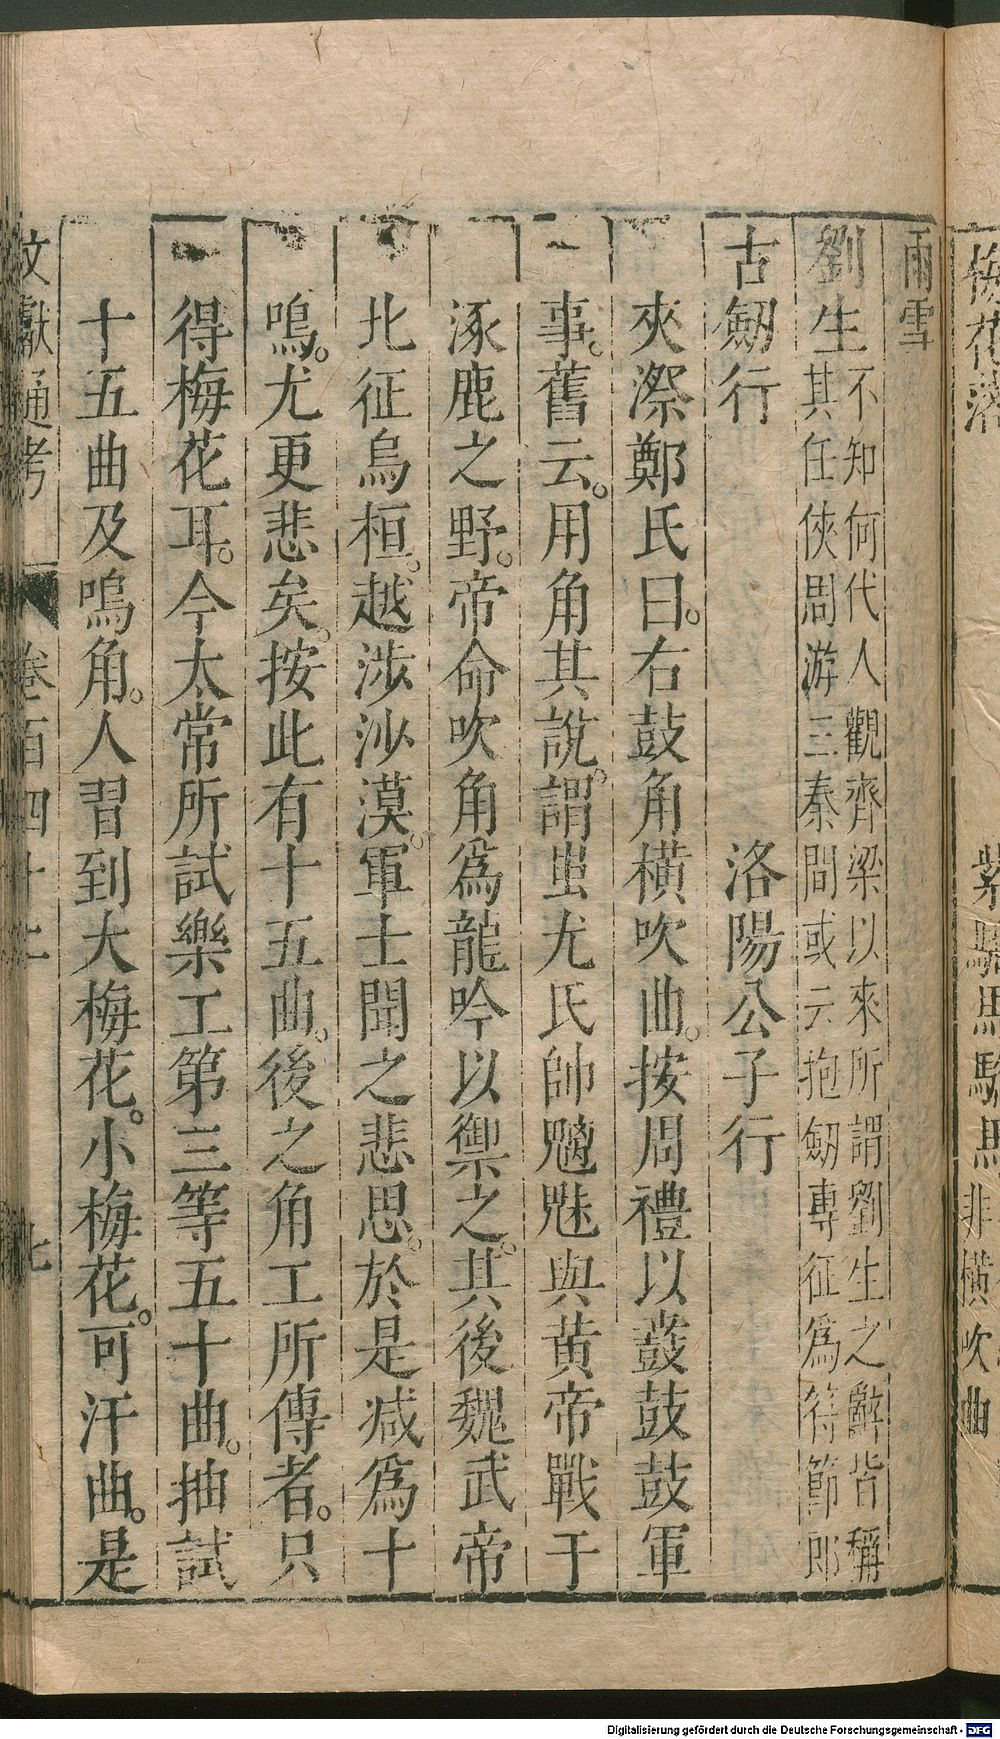 梅花落 紫騮馬 驄馬 非橫吹曲
雨雪
劉生 不知何代人觀齊梁以來所謂劉生之辭皆稱
其任俠周游三秦間或云抱劒專征爲符節郎
古劒行 洛陽公子行
夾漈鄭氏曰。右鼓角橫吹曲。按周禮以鼖鼓鼓軍
事。舊云。用角其說。謂蚩尤氏帥魑魅與黃帝戰于
涿鹿之野。帝命吹角爲龍吟以禦之。其後魏武帝
北征烏桓。越涉沙漠。軍士聞之悲思。於是减爲十
鳴。尤更悲矣。按此有十五曲。後之角工所傳者。只
得梅花耳。今太常所試樂工第三等五十曲。抽試
十五曲及鳴角。人習到大梅花。小梅花。可汗曲。是
文獻通考 卷百四十二 七
Digitalisierung gefördert durch die Deutsche Forschungsgemeinschaft - DFG